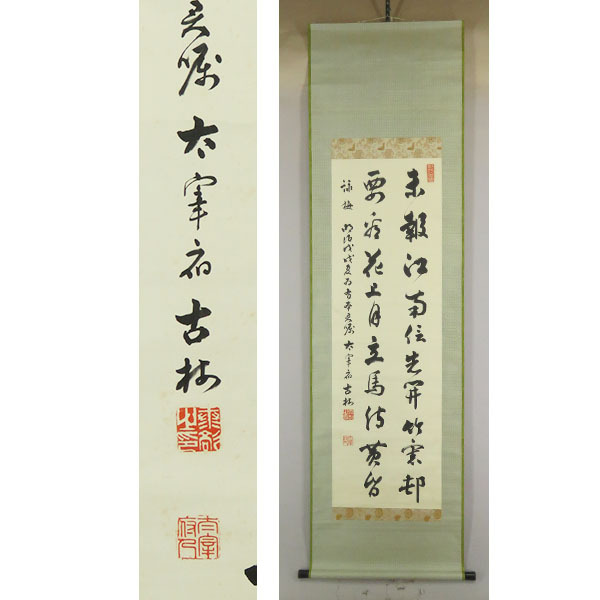 君嘱太宰府古
未報江南信先開竹裏邨
要看花上月立馬待黄昏
詠梅 明治戊戌夏為君嘱 太宰府古